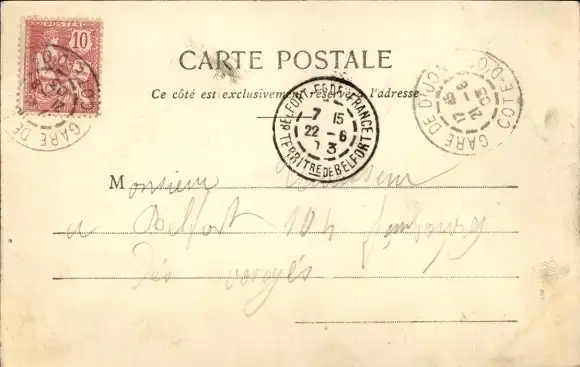 POSTES
10
CARTE POSTALE
Ce côté est exclusivement réservé à l'adresse
GARE DE DIJON
BELFORT-FD DE FRANCE
7 15
22 - 6
03
TERRIT RE DE BELFORT
GARE DE DIJON COTE-D'OR
Monsieur
a Belfort 104 fambourg
Dés vorogés